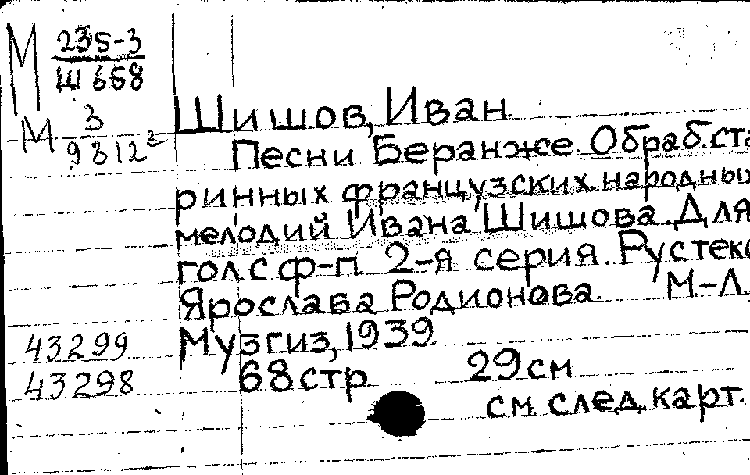 М 235-3
Ш 668
М 3
9312²
Шишов, Иван
Песни Беранже. Обраб. ста
ринных французских народных
мелодий Ивана Шишова. Для
гол. с ф-п. 2-я серия. Рус. текс
Ярослава Родионова. М.-Л.
Музгиз, 1939
43299
43298
68 стр. 29 см
см. след. карт.